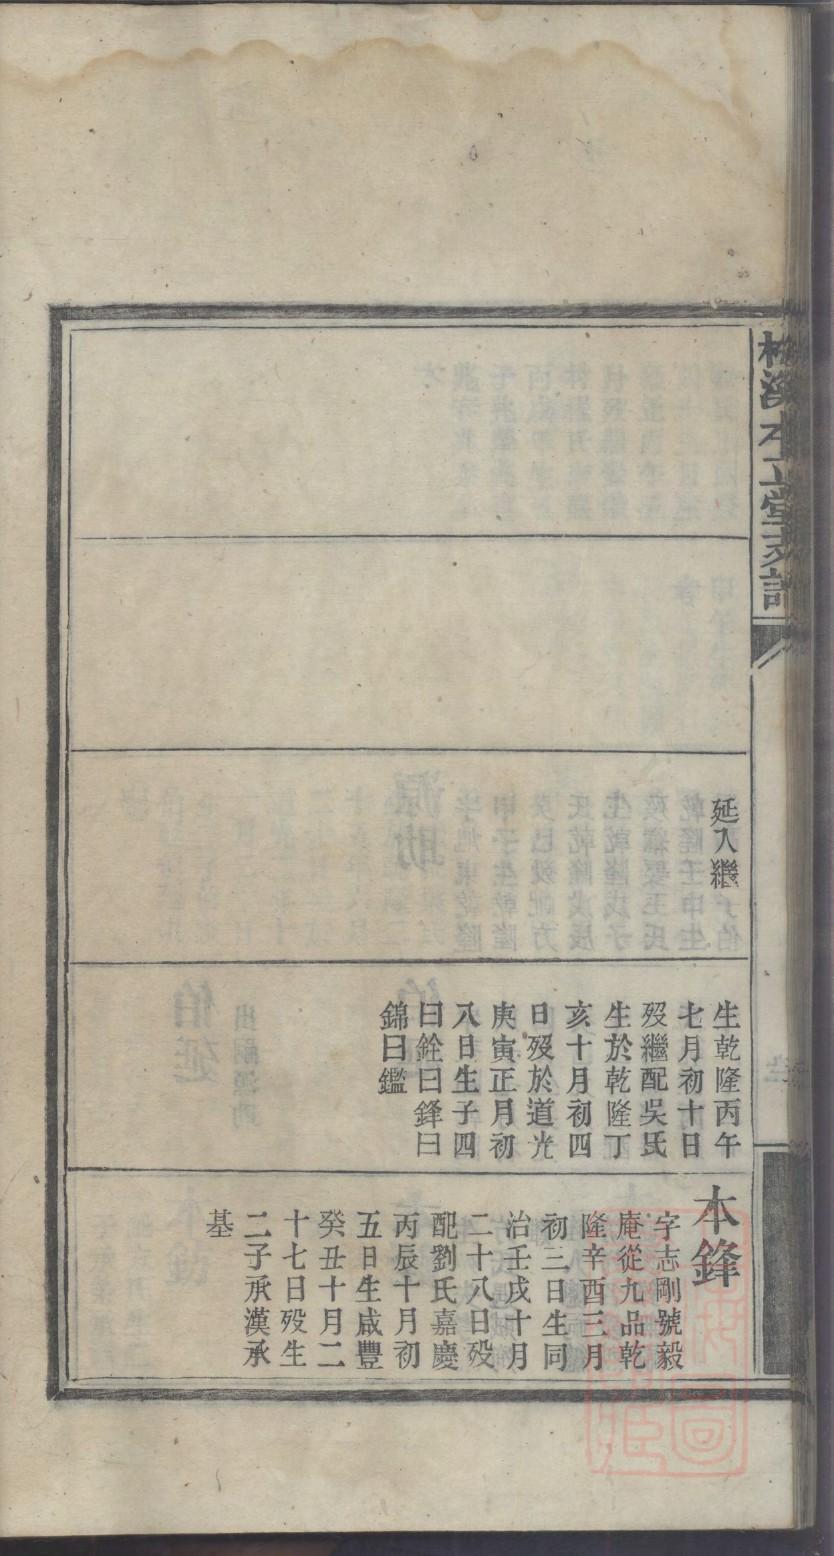 延入繼
生乾隆丙午
七月初十日
歿繼配吳氏
生於乾隆丁
亥十月初四
日歿於道光
庚寅正月初
八日生子四
曰銓曰鋒曰
錦曰鑑
本鋒
字志剛號毅
庵從九品乾
隆辛酉三月
初三日生同
治壬戌十月
二十八日歿
配劉氏嘉慶
丙辰十月初
五日生咸豐
癸丑十月二
十七日歿生
二子承漢承
基